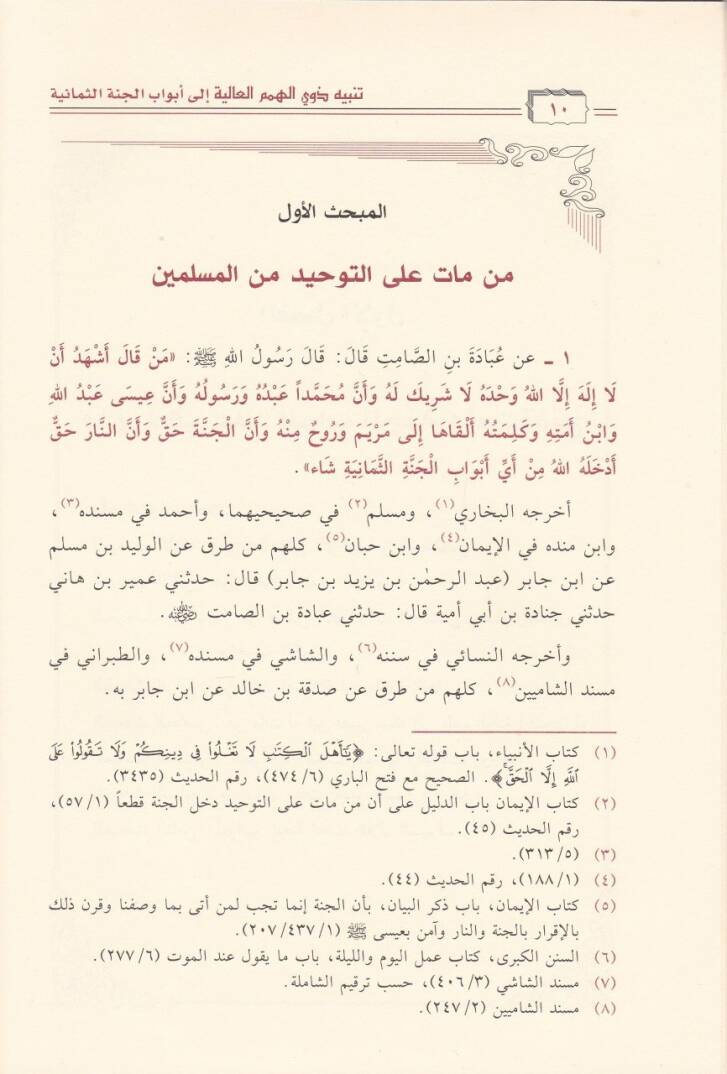 تنبيه ذوي الهمم العالية إلى أبواب الجنة الثمانية
١٠
المبحث الأول
من مات على التوحيد من المسلمين
١ ـ عن عُبَادَةَ بنِ الصَّامِتِ قَالَ: قَالَ رَسُولُ اللهِ ﷺ: «مَنْ قَالَ أَشْهَدُ أَنْ
لَا إِلَهَ إِلَّا اللهُ وَحْدَهُ لَا شَرِيكَ لَهُ وَأَنَّ مُحَمَّداً عَبْدُهُ وَرَسُولُهُ وَأَنَّ عِيسَى عَبْدُ اللهِ
وَابْنُ أَمَتِهِ وَكَلِمَتُهُ أَلْقَاهَا إِلَى مَرْيَمَ وَرُوحٌ مِنْهُ وَأَنَّ الْجَنَّةَ حَقٌّ وَأَنَّ النَّارَ حَقٌّ
أَدْخَلَهُ اللهُ مِنْ أَيِّ أَبْوَابِ الْجَنَّةِ الثَّمَانِيَةِ شَاء».
أخرجه البخاري(١)، ومسلم(٢) في صحيحيهما، وأحمد في مسنده(٣)،
وابن منده في الإيمان(٤)، وابن حبان(٥)، كلهم من طرق عن الوليد بن مسلم
عن ابن جابر (عبد الرحمٰن بن يزيد بن جابر) قال: حدثني عمير بن هاني
حدثني جنادة بن أبي أمية قال: حدثني عبادة بن الصامت رضي الله عنه.
وأخرجه النسائي في سننه(٦)، والشاشي في مسنده(٧)، والطبراني في
مسند الشاميين(٨)، كلهم من طرق عن صدقة بن خالد عن ابن جابر به.
(١) كتاب الأنبياء، باب قوله تعالى: ﴿يَٰٓأَهْلَ ٱلْكِتَٰبِ لَا تَغْلُوا۟ فِى دِينِكُمْ وَلَا تَقُولُوا۟ عَلَى
ٱللَّهِ إِلَّا ٱلْحَقَّۚ﴾. الصحيح مع فتح الباري (٤٧٤/٦)، رقم الحديث (٣٤٣٥).
(٢) كتاب الإيمان باب الدليل على أن من مات على التوحيد دخل الجنة قطعاً (٥٧/١)،
رقم الحديث (٤٥).
(٣) (٣١٣/٥).
(٤) (١٨٨/١)، رقم الحديث (٤٤).
(٥) كتاب الإيمان، باب ذكر البيان، بأن الجنة إنما تجب لمن أتى بما وصفنا وقرن ذلك
بالإقرار بالجنة والنار وآمن بعيسى ﷺ (٢٠٧/٤٣٧/١).
(٦) السنن الكبرى، كتاب عمل اليوم والليلة، باب ما يقول عند الموت (٢٧٧/٦).
(٧) مسند الشاشي (٤٠٦/٣)، حسب ترقيم الشاملة.
(٨) مسند الشاميين (٢٤٧/٢).